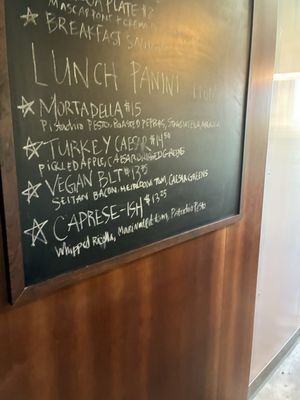 PLATE
MASCARPONE
BREAKFAST
LUNCH PANINI
MORTADELLA $15
PISTACHIO PESTO, ROASTED PEPPERS, STRACIATELLA, ARUGULA
TURKEY CAESAR $14.50
PICKLED APPLE, CAESAR DRESSED GREENS
VEGAN BLT $13.95
SEITAN BACON, HEIRLOOM TOM, CAESAR GREENS
CAPRESE-ISH $13.55
Whipped Ricotta, Marinated tom, Pistachio Pesto